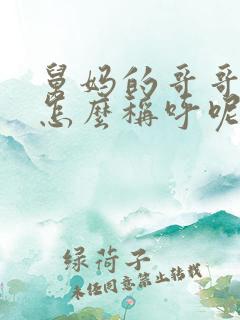 舅妈的哥哥
怎麼稱呼呢
绿荷子
未径同意禁止转载